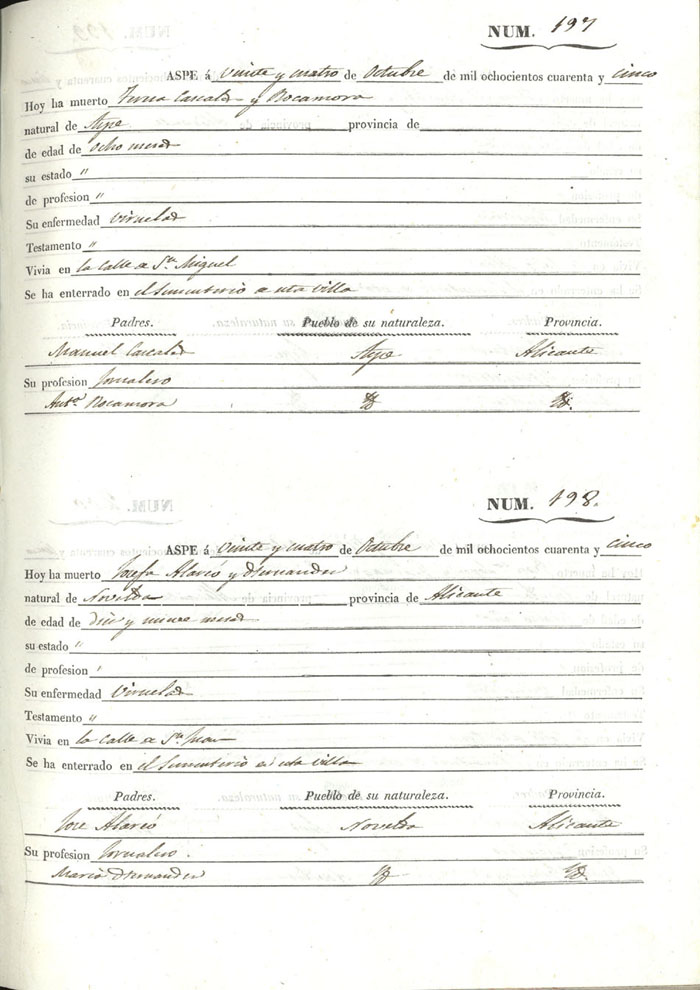 NUM. 197
ASPE á veinte y cuatro de Octubre de mil ochocientos cuarenta y cinco
Hoy ha muerto Cascales y Rocamora
natural de Aspe provincia de
de edad de ocho meses
su estado "
de profesion "
Su enfermedad viruelas
Testamento "
Vivia en la Calle de Sn. Miguel
Se ha enterrado en el Sementerio de esta villa
Padres. Pueblo de su naturaleza. Provincia.
Manuel Cascales Aspe Alicante
Su profesion Jornalero
Anta. Rocamora Yd. Yd.
NUM. 198.
ASPE á veinte y cuatro de Octubre de mil ochocientos cuarenta y cinco
Hoy ha muerto Josefa Alarcó y Hernandez
natural de Novelda provincia de Alicante
de edad de diez y nueve meses
su estado "
de profesion "
Su enfermedad Viruelas
Testamento "
Vivia en la Calle de Sn. Juan
Se ha enterrado en el Sementerio de esta villa
Padres. Pueblo de su naturaleza. Provincia.
Jose Alarcó Novelda Alicante
Su profesion Jornalero.
Maria Hernandez Yd. Yd.